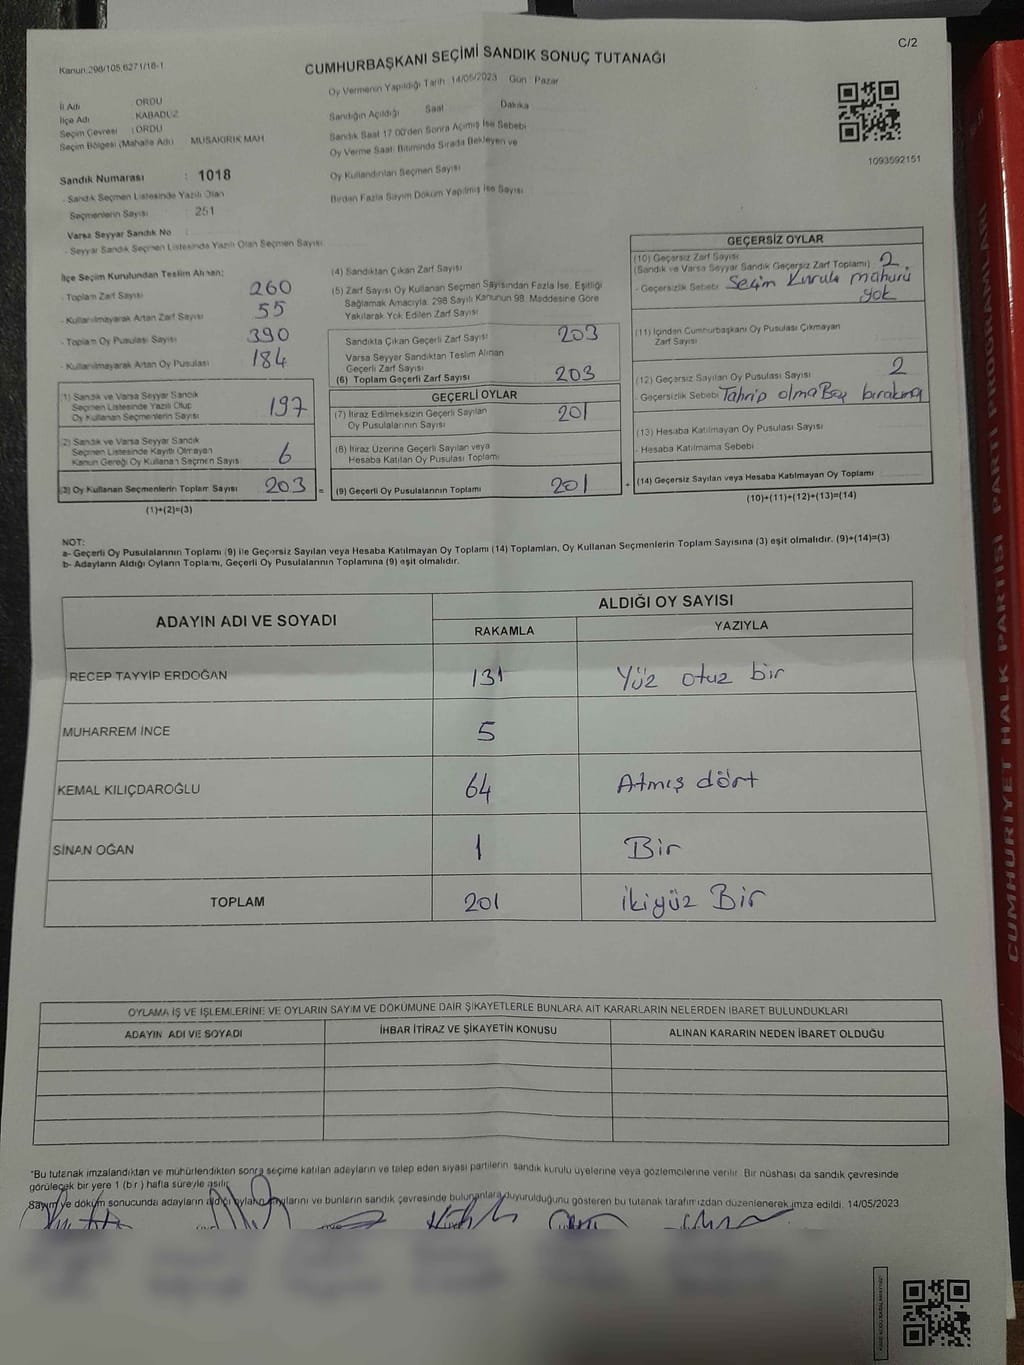 C/2
Kanun:298/105,6271/18-1
CUMHURBAŞKANI SEÇİMİ SANDIK SONUÇ TUTANAĞI
Oy Vermenin Yapıldığı Tarih :14/05/2023 Gün : Pazar
İl Adı : ORDU
İlçe Adı : KABADÜZ
Seçim Çevresi : ORDU
Seçim Bölgesi (Mahalle Adı) MUSAKIRIK MAH
Sandığın Açıldığı Saat Dakika
Sandık Saat 17.00'den Sonra Açımış İse Sebebi
Oy Verme Saati Bitiminde Sırada Bekleyen ve
Oy Kullandırılan Seçmen Sayısı
Birden Fazla Sayım Döküm Yapılmış İse Sayısı
1093592151
Sandık Numarası : 1018
- Sandık Seçmen Listesinde Yazılı Olan
Seçmenlerin Sayısı : 251
Varsa Seyyar Sandık No :
- Seyyar Sandık Seçmen Listesinde Yazılı Olan Seçmen Sayısı
İlçe Seçim Kurulundan Teslim Alınan;
- Toplam Zarf Sayısı 260
- Kullanılmayarak Artan Zarf Sayısı 55
- Toplam Oy Pusulası Sayısı 390
- Kullanılmayarak Artan Oy Pusulası 184
1) Sandık ve Varsa Seyyar Sandık
Seçmen Listesinde Yazılı Olup
Oy Kullanan Seçmenlerin Sayısı 197
2) Sandık ve Varsa Seyyar Sandık
Seçmen Listesinde Kayıtlı Olmayan
Kanun Gereği Oy Kullanan Seçmen Sayısı 6
(3) Oy Kullanan Seçmenlerin Toplam Sayısı 203 =
(1)+(2)=(3)
(4) Sandıktan Çıkan Zarf Sayısı
(5) Zarf Sayısı Oy Kullanan Seçmen Sayısından Fazla İse, Eşitliği
Sağlamak Amacıyla, 298 Sayılı Kanunun 98. Maddesine Göre
Yakılarak Yok Edilen Zarf Sayısı
Sandıkta Çıkan Geçerli Zarf Sayısı 203
Varsa Seyyar Sandıktan Teslim Alınan
Geçerli Zarf Sayısı
(6) Toplam Geçerli Zarf Sayısı 203
GEÇERLİ OYLAR
(7) İtiraz Edilmeksizin Geçerli Sayılan
Oy Pusulalarının Sayısı 201
(8) İtiraz Üzerine Geçerli Sayılan veya
Hesaba Katılan Oy Pusulası Toplamı
(9) Geçerli Oy Pusulalarının Toplamı 201 +
GEÇERSİZ OYLAR
(10) Geçersiz Zarf Sayısı
(Sandık ve Varsa Seyyar Sandık Geçersiz Zarf Toplamı) 2
- Geçersizlik Sebebi Seçim Kurulu mührü
yok
(11) İçinden Cumhurbaşkanı Oy Pusulası Çıkmayan
Zarf Sayısı
(12) Geçersiz Sayılan Oy Pusulası Sayısı 2
- Geçersizlik Sebebi Tahrip olma Boş bırakma
(13) Hesaba Katılmayan Oy Pusulası Sayısı
- Hesaba Katılmama Sebebi
(14) Geçersiz Sayılan veya Hesaba Katılmayan Oy Toplamı
(10)+(11)+(12)+(13)=(14)
NOT:
a- Geçerli Oy Pusulalarının Toplamı (9) ile Geçersiz Sayılan veya Hesaba Katılmayan Oy Toplamı (14) Toplamları, Oy Kullanan Seçmenlerin Toplam Sayısına (3) eşit olmalıdır. (9)+(14)=(3)
b- Adayların Aldığı Oyların Toplamı, Geçerli Oy Pusulalarının Toplamına (9) eşit olmalıdır.
ADAYIN ADI VE SOYADI
ALDIĞI OY SAYISI
RAKAMLA YAZIYLA
RECEP TAYYİP ERDOĞAN 131 Yüz otuz bir
MUHARREM İNCE 5
KEMAL KILIÇDAROĞLU 64 Atmış dört
SİNAN OĞAN 1 Bir
TOPLAM 201 ikiyüz Bir
OYLAMA İŞ VE İŞLEMLERİNE VE OYLARIN SAYIM VE DÖKÜMÜNE DAİR ŞİKAYETLERLE BUNLARA AİT KARARLARIN NELERDEN İBARET BULUNDUKLARI
ADAYIN ADI VE SOYADI İHBAR İTİRAZ VE ŞİKAYETİN KONUSU ALINAN KARARIN NEDEN İBARET OLDUĞU
*Bu tutanak imzalandıktan ve mühürlendikten sonra seçime katılan adayların ve talep eden siyasi partilerin sandık kurulu üyelerine veya gözlemcilerine verilir. Bir nüshası da sandık çevresinde
görülecek bir yere 1 (bir) hafta süreyle asılır.
Sayım ve döküm sonucunda adayların aldığı oyların sayılarını ve bunların sandık çevresinde bulunanlara duyurulduğunu gösteren bu tutanak tarafımızdan düzenlenerek imza edildi. 14/05/2023
CUMHURİYET HALK PARTİSİ PARTİ PROGRAMLARI